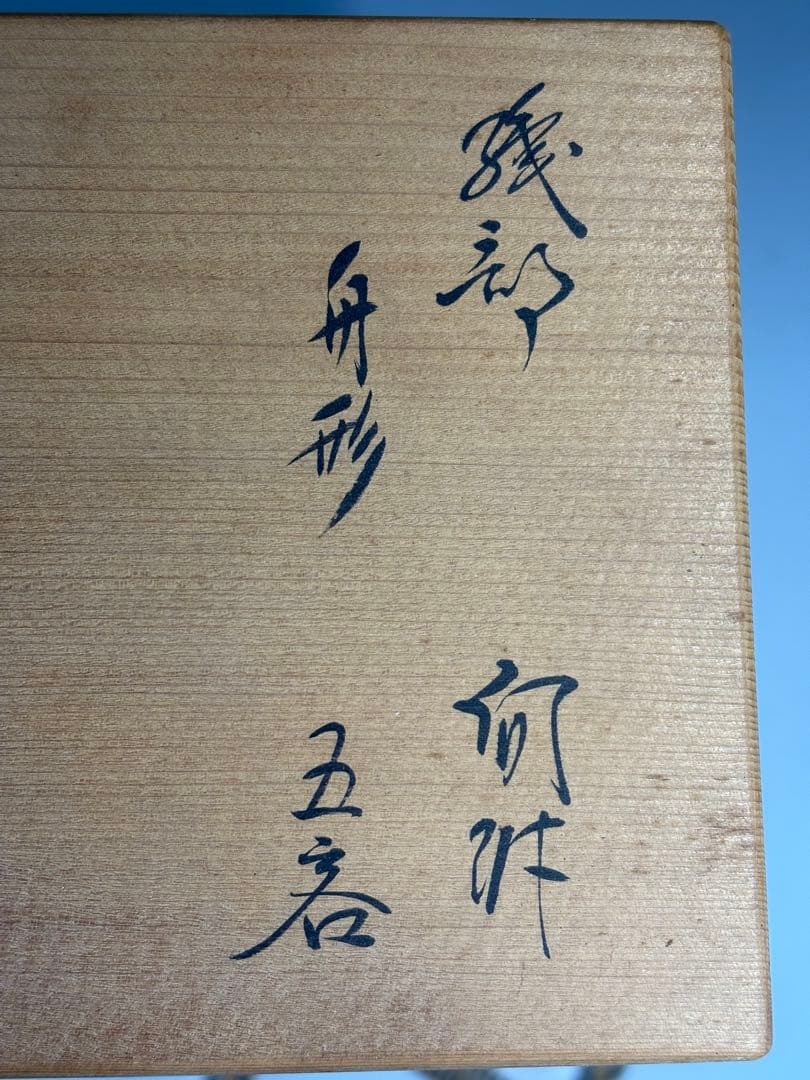 織部 向附
舟形 五客